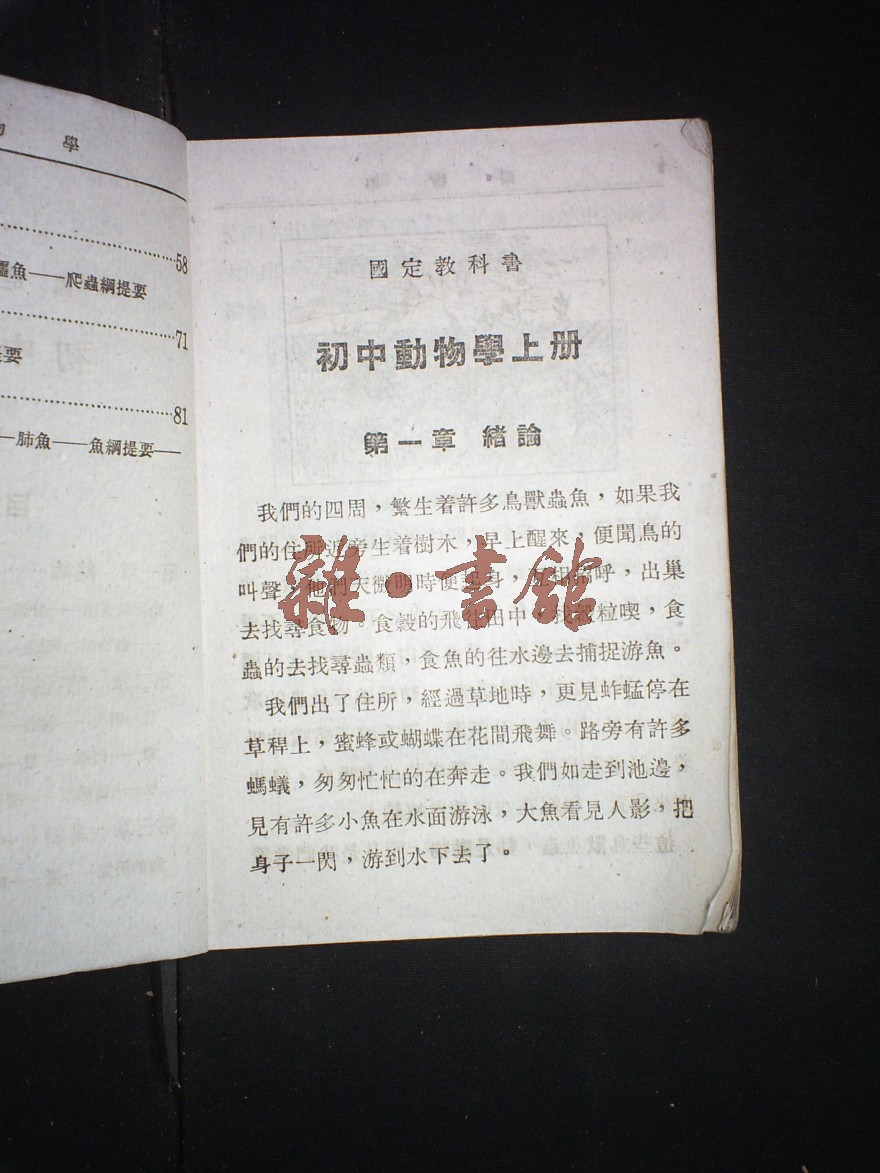 學
58
魚——爬蟲綱提要
71
要
81
——肺魚——魚綱提要——
國定教科書
初中動物學上册
第一章 緒論
我們的四周，繁生着許多鳥獸蟲魚，如果我
們的住所近旁生着樹木，早上醒來，便聞鳥的
叫聲，他們天微明時便起身，互相招呼，出巢
去找尋食物 食榖的飛往田中，找榖粒喫，食
蟲的去找尋蟲類，食魚的往水邊去捕捉游魚。
我們出了住所，經過草地時，更見蚱蜢停在
草稈上，蜜蜂或蝴蝶在花間飛舞。路旁有許多
螞蟻，匆匆忙忙的在奔走。我們如走到池邊，
見有許多小魚在水面游泳，大魚看見人影，把
身子一閃，游到水下去了。
雜·書館